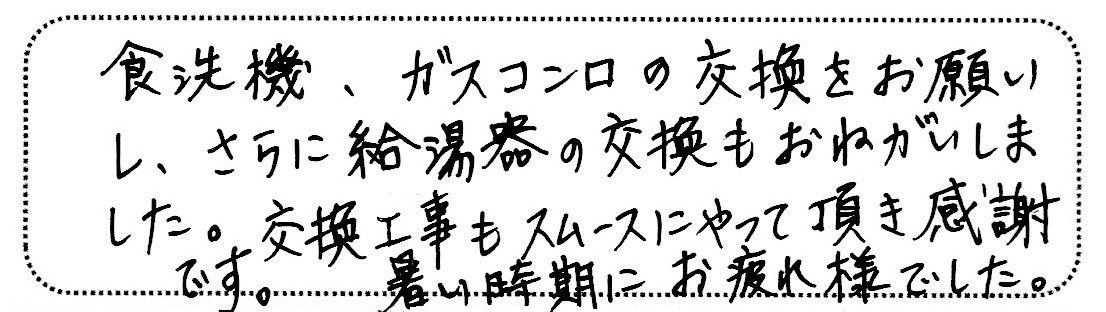 食洗機、ガスコンロの交換をお願い
し、さらに給湯器の交換もおねがいしま
した。交換工事もスムースにやって頂き感謝
です。 暑い時期にお疲れ様でした。